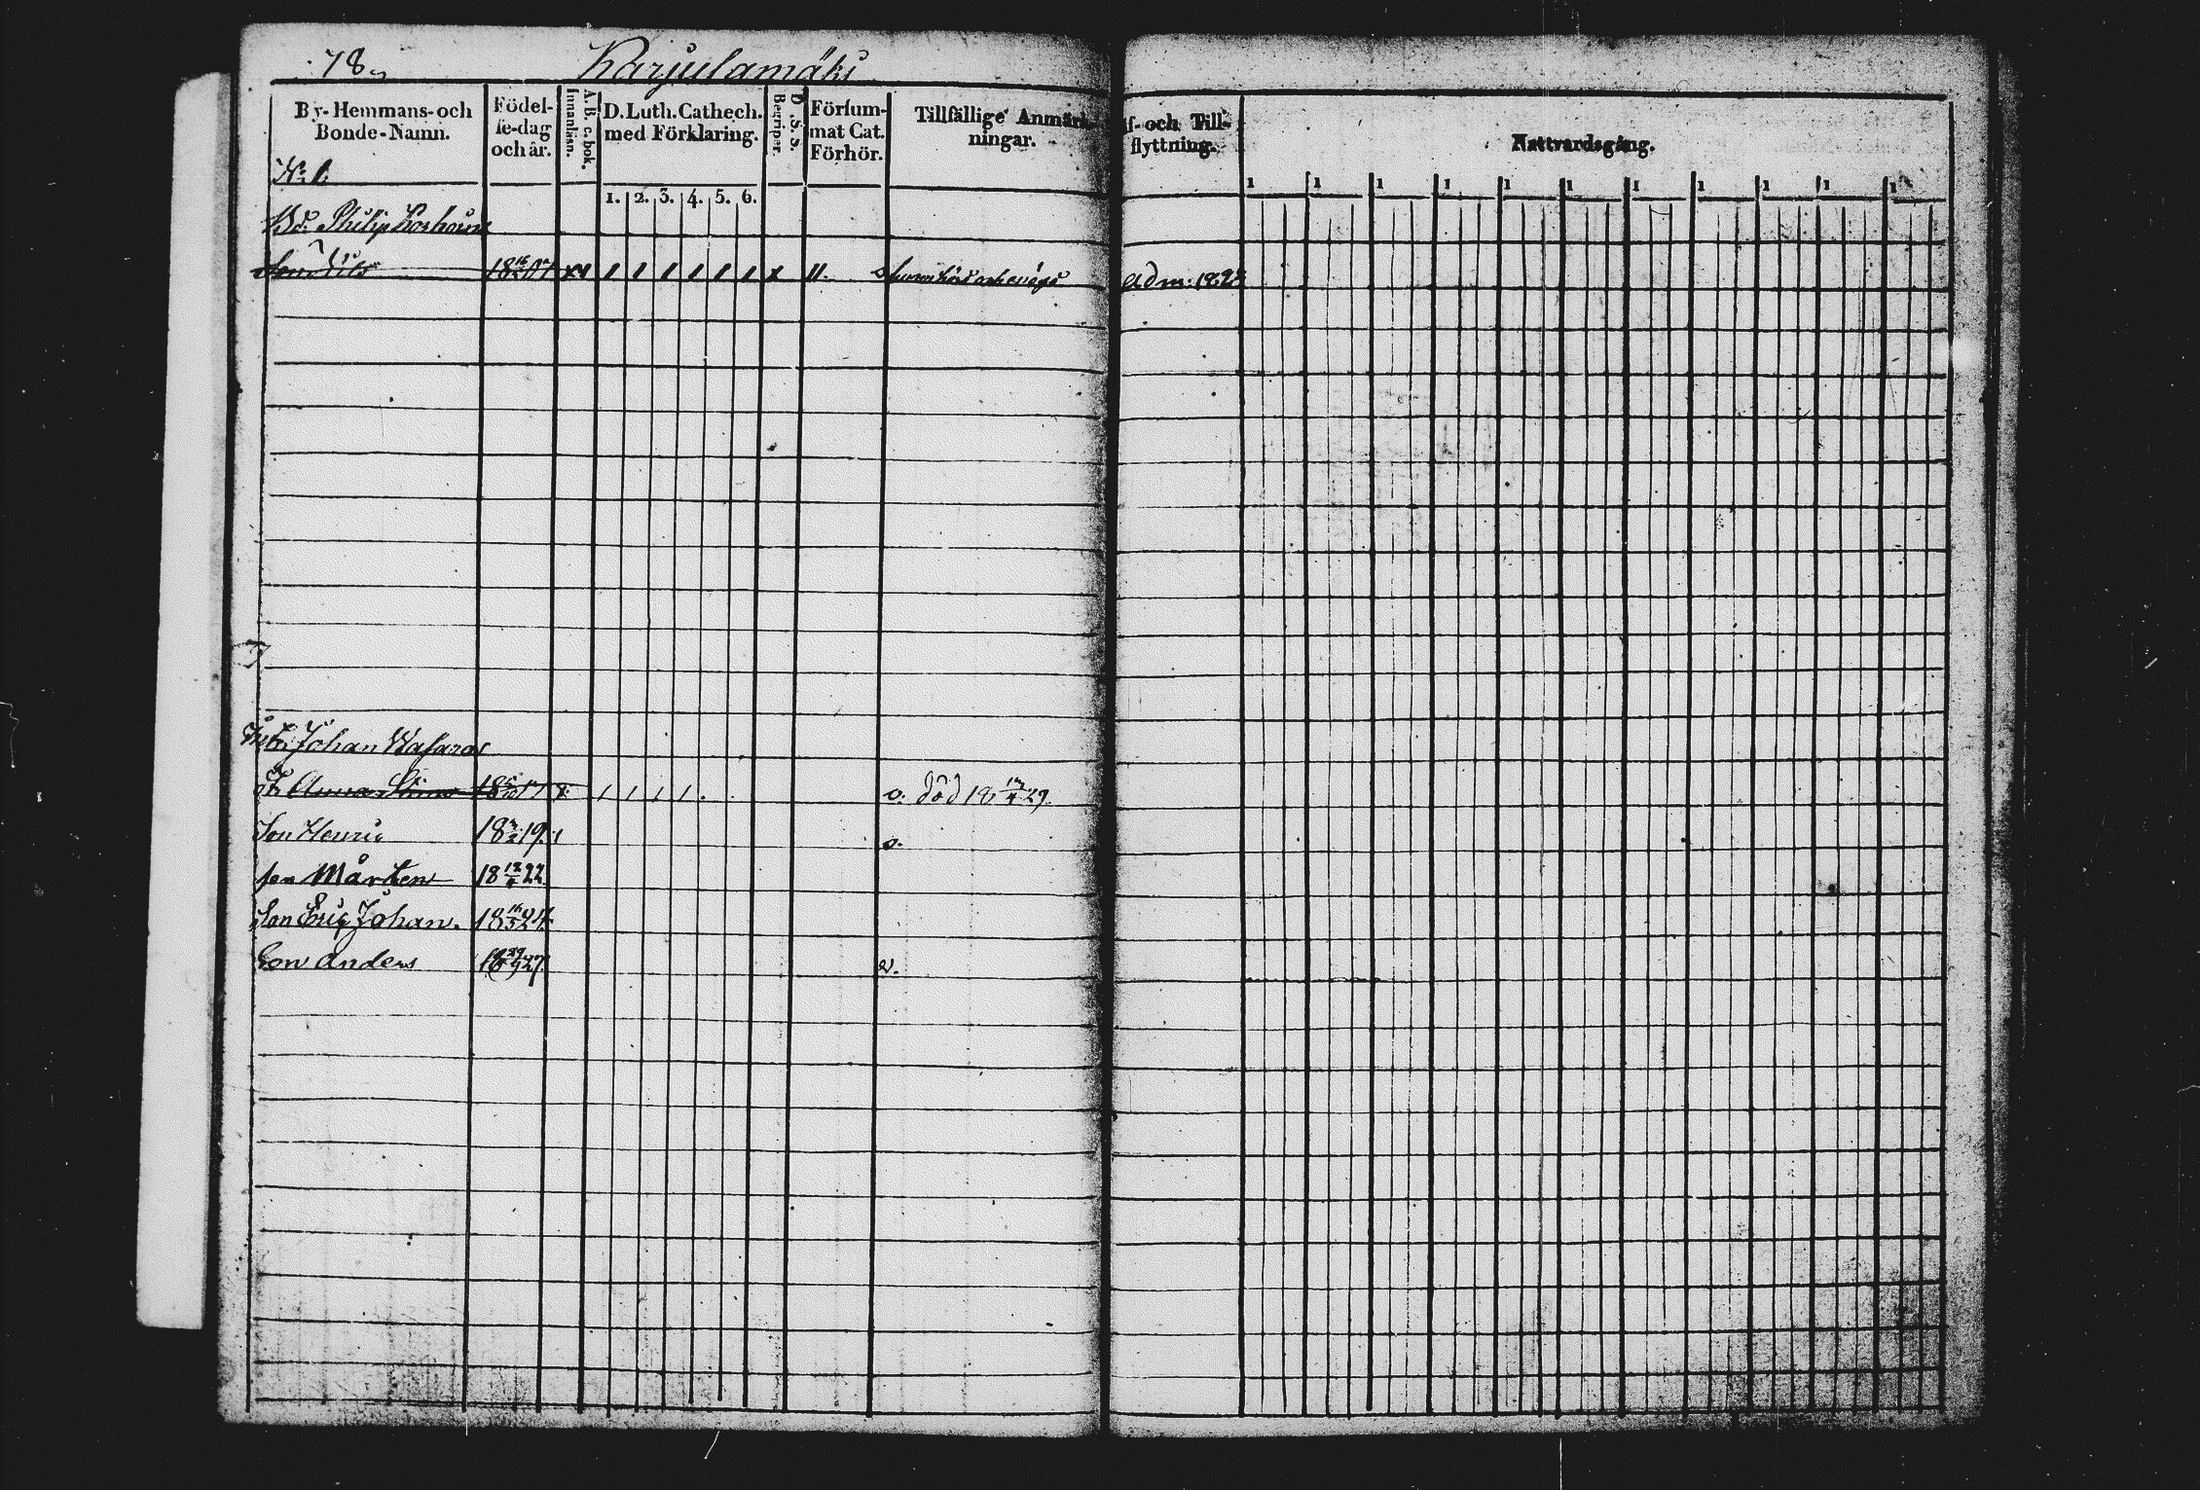 78.
Karjulamäki
By-Hemmans-och Bonde-Namn.
Födel-se-dag och år.
A.B.c.bok. Innanläsn.
D. Luth. Cathech. med Förklaring.
D.S.S. Begriper.
Försum-mat Cat. Förhör.
Tillfällige Anmärk-ningar.
Af- och Till-flyttning.
Nattvardsgång.
N:o 1.
1. 2. 3. 4. 5. 6.
1 1 1 1 1 1 1 1 1 1 1
Bd. Philip
Son Nils 18 07 x1 1 1 1 1 1 1 x 11. Adm: 182
Johan
Anna 18 17 x 1 1 1 1 . o. död 18 29.
Son Henric 18 19. 1 o.
son Mårten 18 22
Son Eriq Johan. 18 16/5 24.
Son Anders 18 29/9 27.